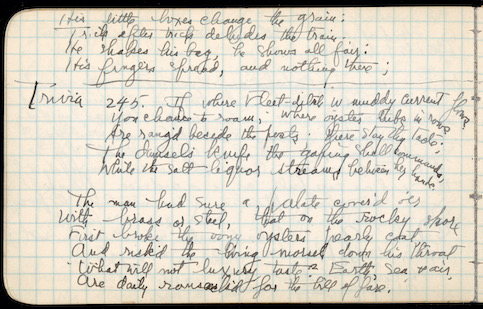 His little boxes change the grain;
Trick after trick deludes the train.
He shakes his bag, he shows all fair;
His fingers spread, and nothing there;
Trivia 245. If where Fleet-ditch w muddy current flows
You chance to roam; where oyster tubs in rows
Are rang'd beside the posts; there stay thy haste;
The damsel's knife the gaping shell commands,
While the salt liquor streams between her hands.
The man had sure a palate cover'd o'er
With brass or steel, that on the rocky shore
First broke the oozy oyster's pearly coat,
And risk'd the living morsel down his throat
What will not luxury taste? Earth, sea & air,
Are daily ransack'd for the bill of fare.